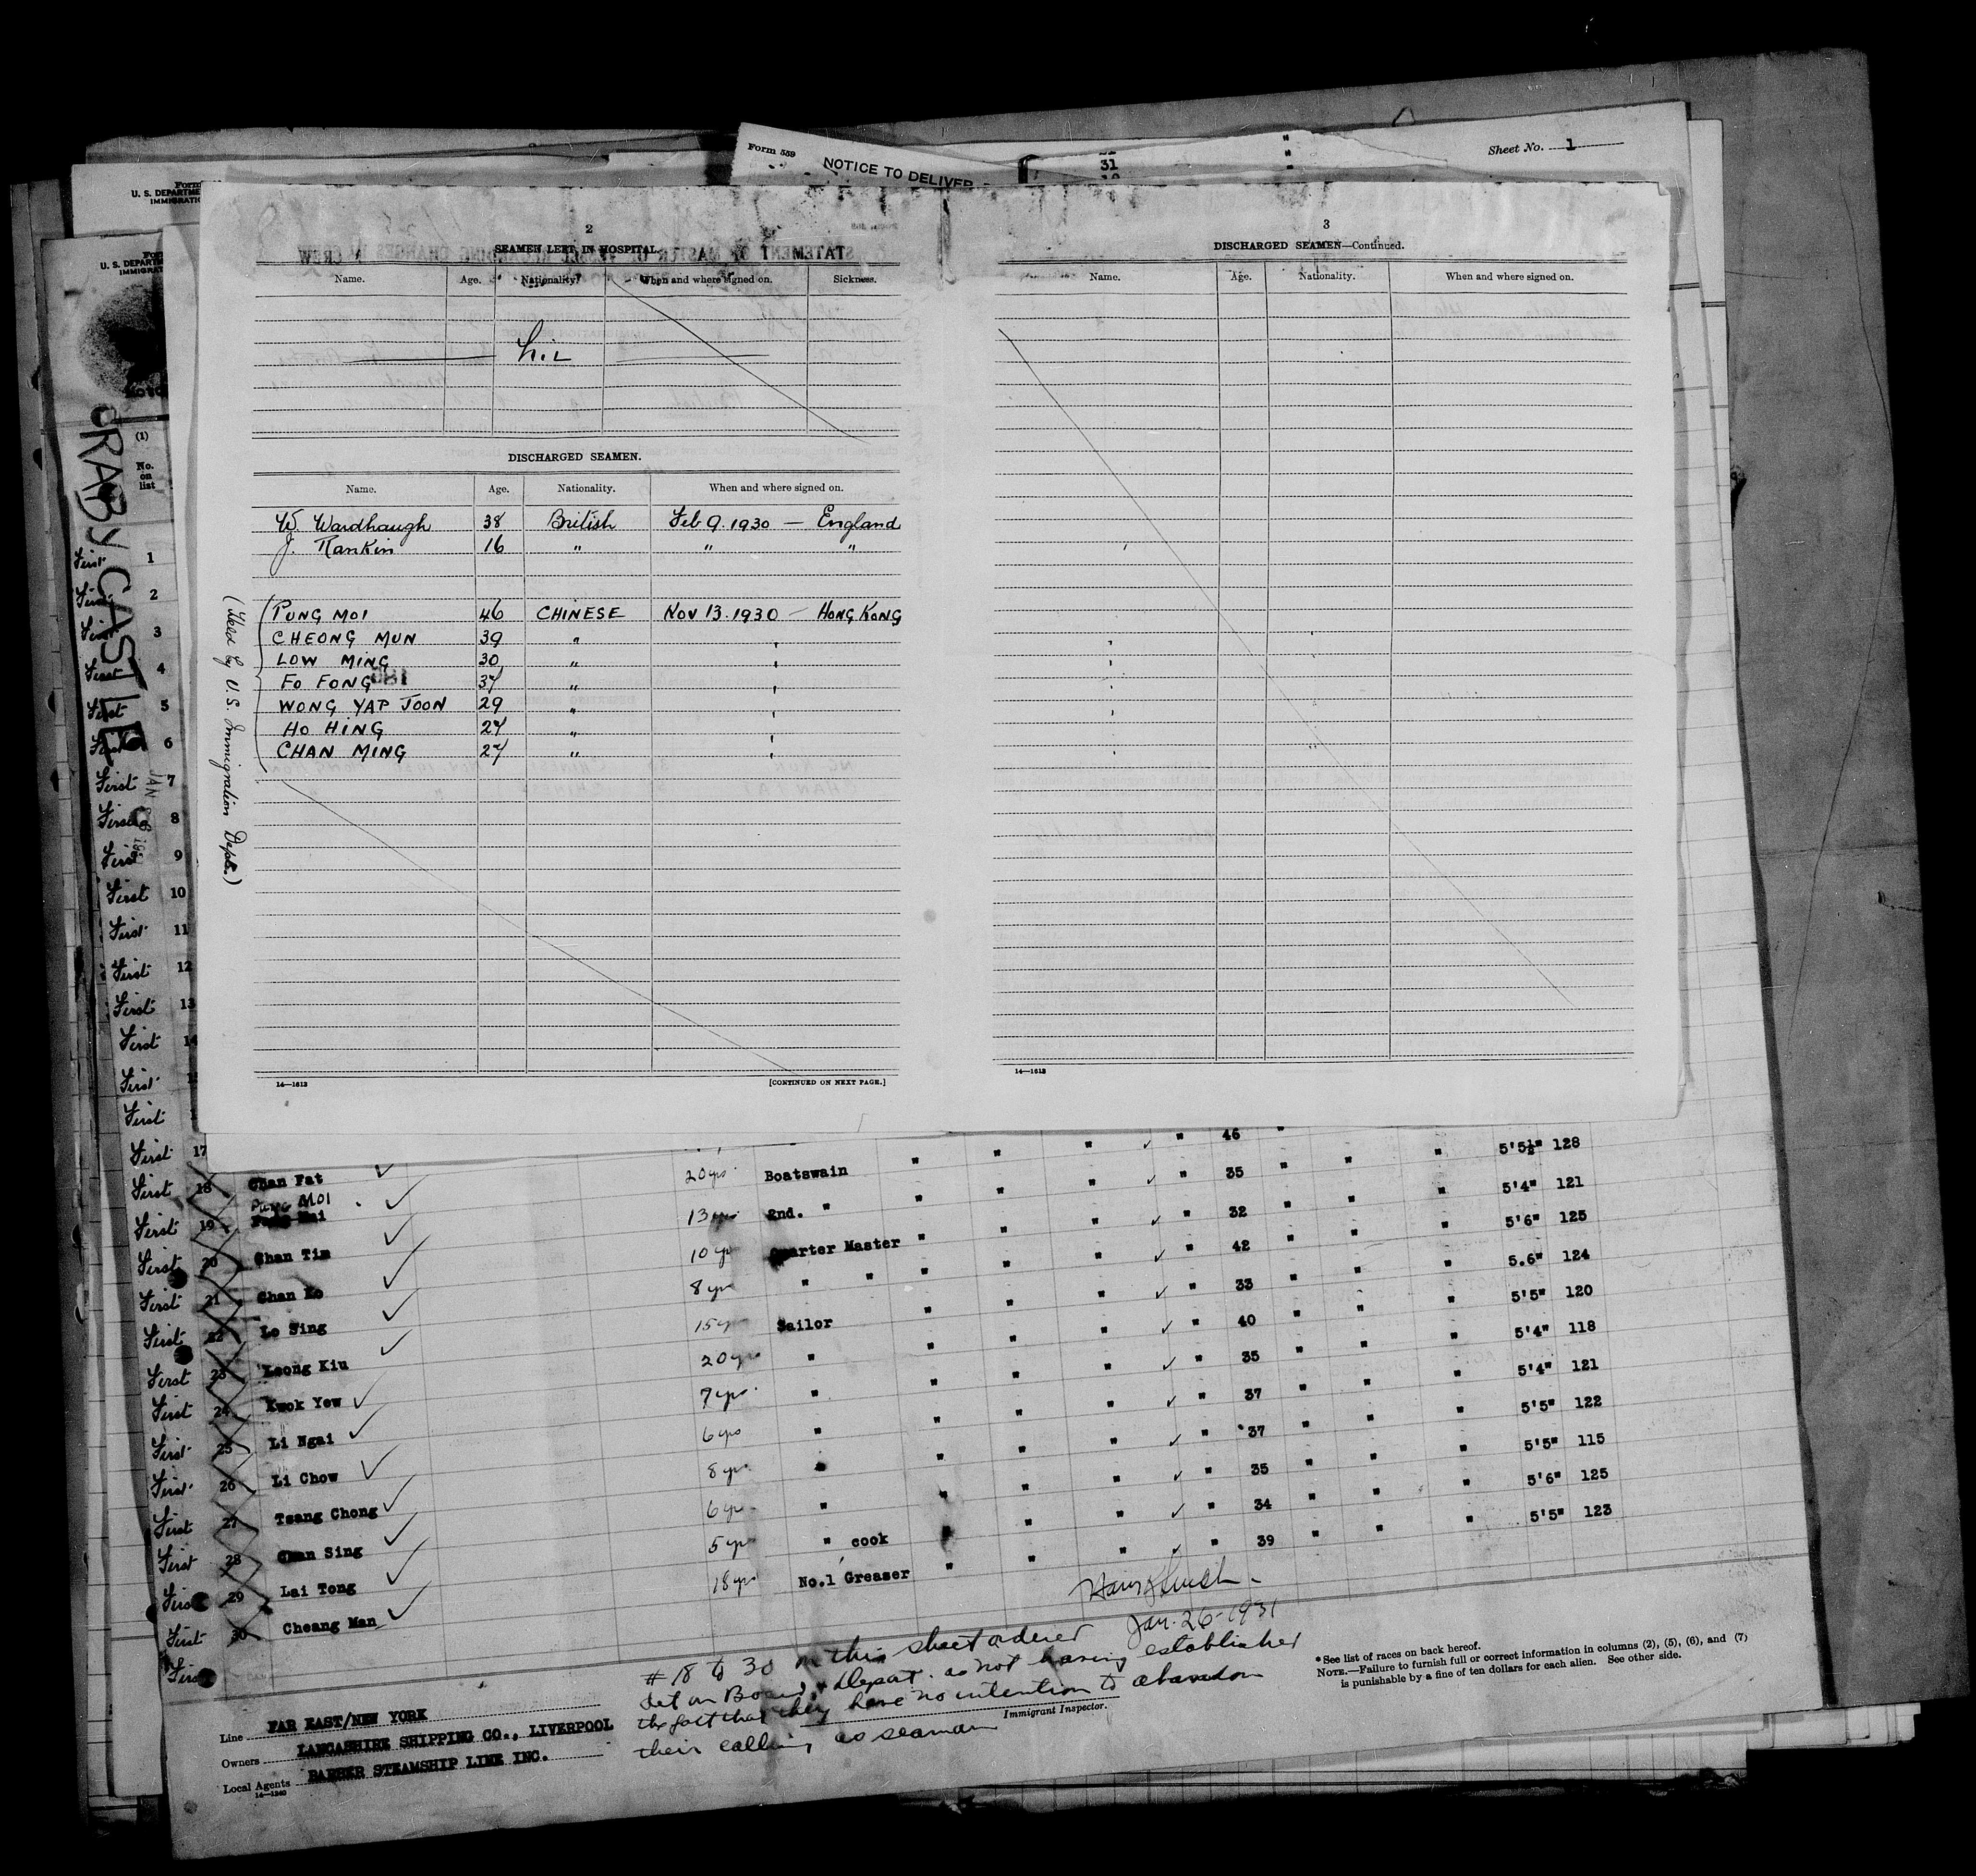 Form 559
NOTICE TO DELIVER
31
Sheet No. 1
U. S. DEPARTME
IMMIGRATIO
U. S. DEPARTM
IMMIGRAT
2
SEAMEN LEFT IN HOSPITAL
Name. Age. Nationality. When and where signed on. Sickness.
Nil
DISCHARGED SEAMEN.
Name. Age. Nationality. When and where signed on.
W. Wardhaugh 38 British Feb 9. 1930 — England
J. Rankin 16 " " "
PUNG MOI 46 CHINESE NOV 13. 1930 — HONG KONG
CHEONG MUN 39 "
LOW MING 30 "
FO FONG 37 "
WONG YAP JOON 29 "
HO HING 27 "
CHAN MING 27 "
U.S. Immigration Dept.)
14—1613 [CONTINUED ON NEXT PAGE.]
3
DISCHARGED SEAMEN—Continued.
Name. Age. Nationality. When and where signed on.
14—1613
RABY CASTLE
(1)
No.
on
list
First 1
First 2
First 3
First 4
First 5
First 6
First 7
First 8
First 9
First 10
First 11
First 12
First 13
First
First
First
First 17
" " " ✓ " 46 " 5'5½" 128
First 18 Chan Fat ✓ 20 yrs Boatswain " " " ✓ " 35 " " " 5'4" 121
Pung MOI
First 19 ✓ 13 yrs 2nd. " " " " ✓ " 32 " " " 5'6" 125
First 20 Chan Tim ✓ 10 yr Quarter Master " " " ✓ " 42 " " " 5.6" 124
First 21 Chan Ko ✓ 8 yr " " " " " ✓ " 33 " " " 5'5" 120
First 22 Lo Sing ✓ 15 yr Sailor " " " ✓ " 40 " " " 5'4" 118
First 23 Leong Kiu ✓ 20 yr " " " " ✓ " 35 " " " 5'4" 121
First 24 Kwok Yew ✓ 7 yr " " " " ✓ " 37 " " " 5'5" 122
First 25 Li Ngai ✓ 6 yrs " " " " ✓ " 37 " " " 5'5" 115
First 26 Li Chow ✓ 8 yr " " " " ✓ " 35 " " " 5'6" 125
First 27 Tsang Chong ✓ 6 yr " " " " ✓ " 34 " " " 5'5" 123
First 28 Chan Sing ✓ 5 yr " cook " " " ✓ " 39 " " "
First 29 Lai Tong ✓ 18 yrs No.1 Greaser " " "
First 30 Cheang Man ✓
First
Jan. 26-1931
# 18 to 30 on this sheet ordered
det on Board & Deport. as not having established
the fact that they have no intention to abandon
their calling as seaman
Immigrant Inspector.
* See list of races on back hereof.
NOTE.—Failure to furnish full or correct information in columns (2), (5), (6), and (7)
is punishable by a fine of ten dollars for each alien. See other side.
Line FAR EAST/NEW YORK
Owners LANCASHIRE SHIPPING CO., LIVERPOOL
Local Agents BARBER STEAMSHIP LINE INC.
14—1240